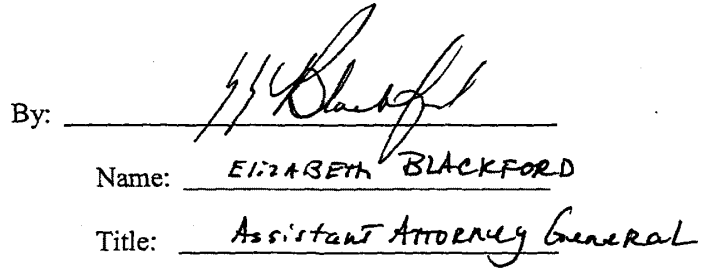 By: Blackford
Name: ElizABETh BLACKFORD
Title: Assistant Attorney General